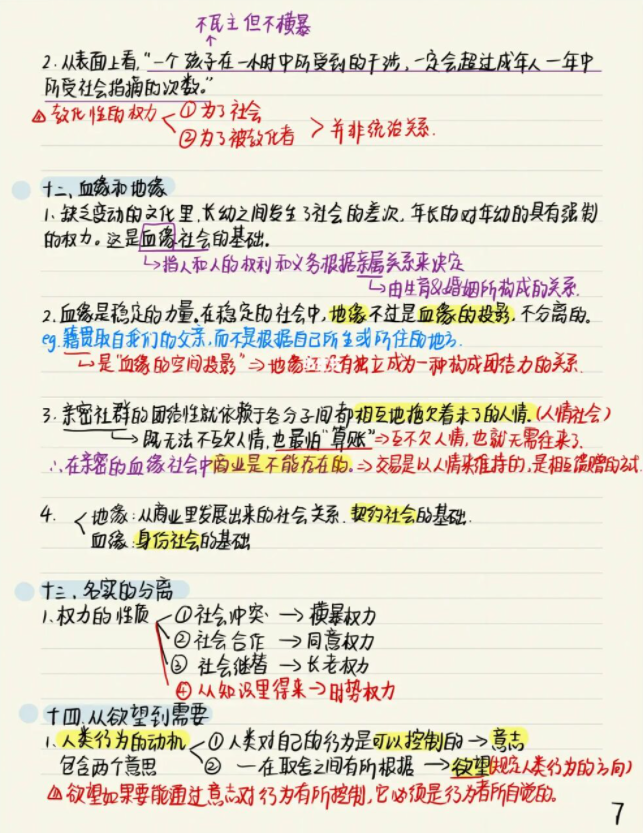 不民主但不横暴
2.从表面上看,“一个孩子在一小时中所受到的干涉,一定会超过成年人一年中
所受社会指摘的次数。”
教化性的权力 ①为了社会
②为了被教化者 > 并非统治关系.
十二、血缘和地缘
1、缺乏变动的文化里,长幼之间发生了社会的差次,年长的对年幼的具有强制
的权力。这是血缘社会的基础.
↳指人和人的权利和义务根据亲属关系来决定
↳由生育&婚姻所构成的关系.
2.血缘是稳定的力量.在稳定的社会中,地缘不过是血缘的投影,不分离的。
eg.籍贯取自我们的父亲,而不是根据自己所生或所住的地方.
↳是“血缘的空间投影”⇒地缘还没有独立成为一种构成团结力的关系.
3.亲密社群的团结性就依赖于各分子间都相互地拖欠着未了的人情.(人情社会)
↳既无法不互欠人情,也最怕“算账”⇒互不欠人情,也就无需往来了.
∴在亲密的血缘社会中商业是不能存在的.⇒交易是以人情来维持的,是相互馈赠的方式.
4. 地缘:从商业里发展出来的社会关系.契约社会的基础.
血缘:身份社会的基础
十三、名实的分离
1、权力的性质 ①社会冲突 → 横暴权力
②社会合作 → 同意权力
③社会继替 → 长老权力
④从知识里得来→时势权力
十四.从欲望到需要
1.人类行为的动机 ①人类对自己的行为是可以控制的→意志
包含两个意思 ②一在取舍之间有所根据 →欲望(规定人类行为的方向)
欲望如果要能通过意志对行为有所控制,它必须是行为者所自觉的.
7